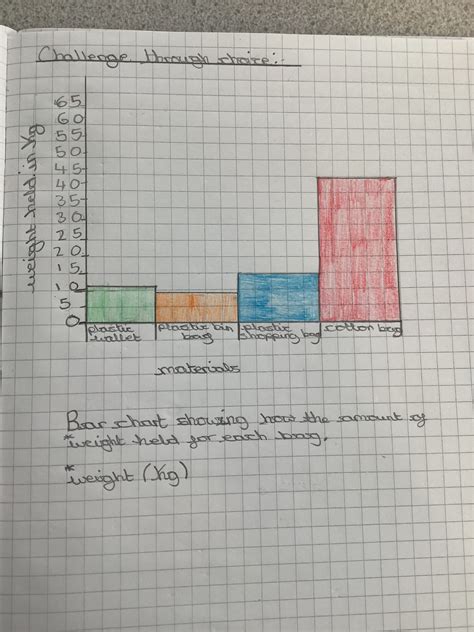 Challenge through choice:-
weight held in Kg
65
60
55
50
45
40
35
30
25
20
15
10
5
0
plastic wallet
plastic bin bag
plastic shopping bag
cotton bag
materials
Bar chart showing how the amount of
*weight held for each bag.
*weight (Kg)